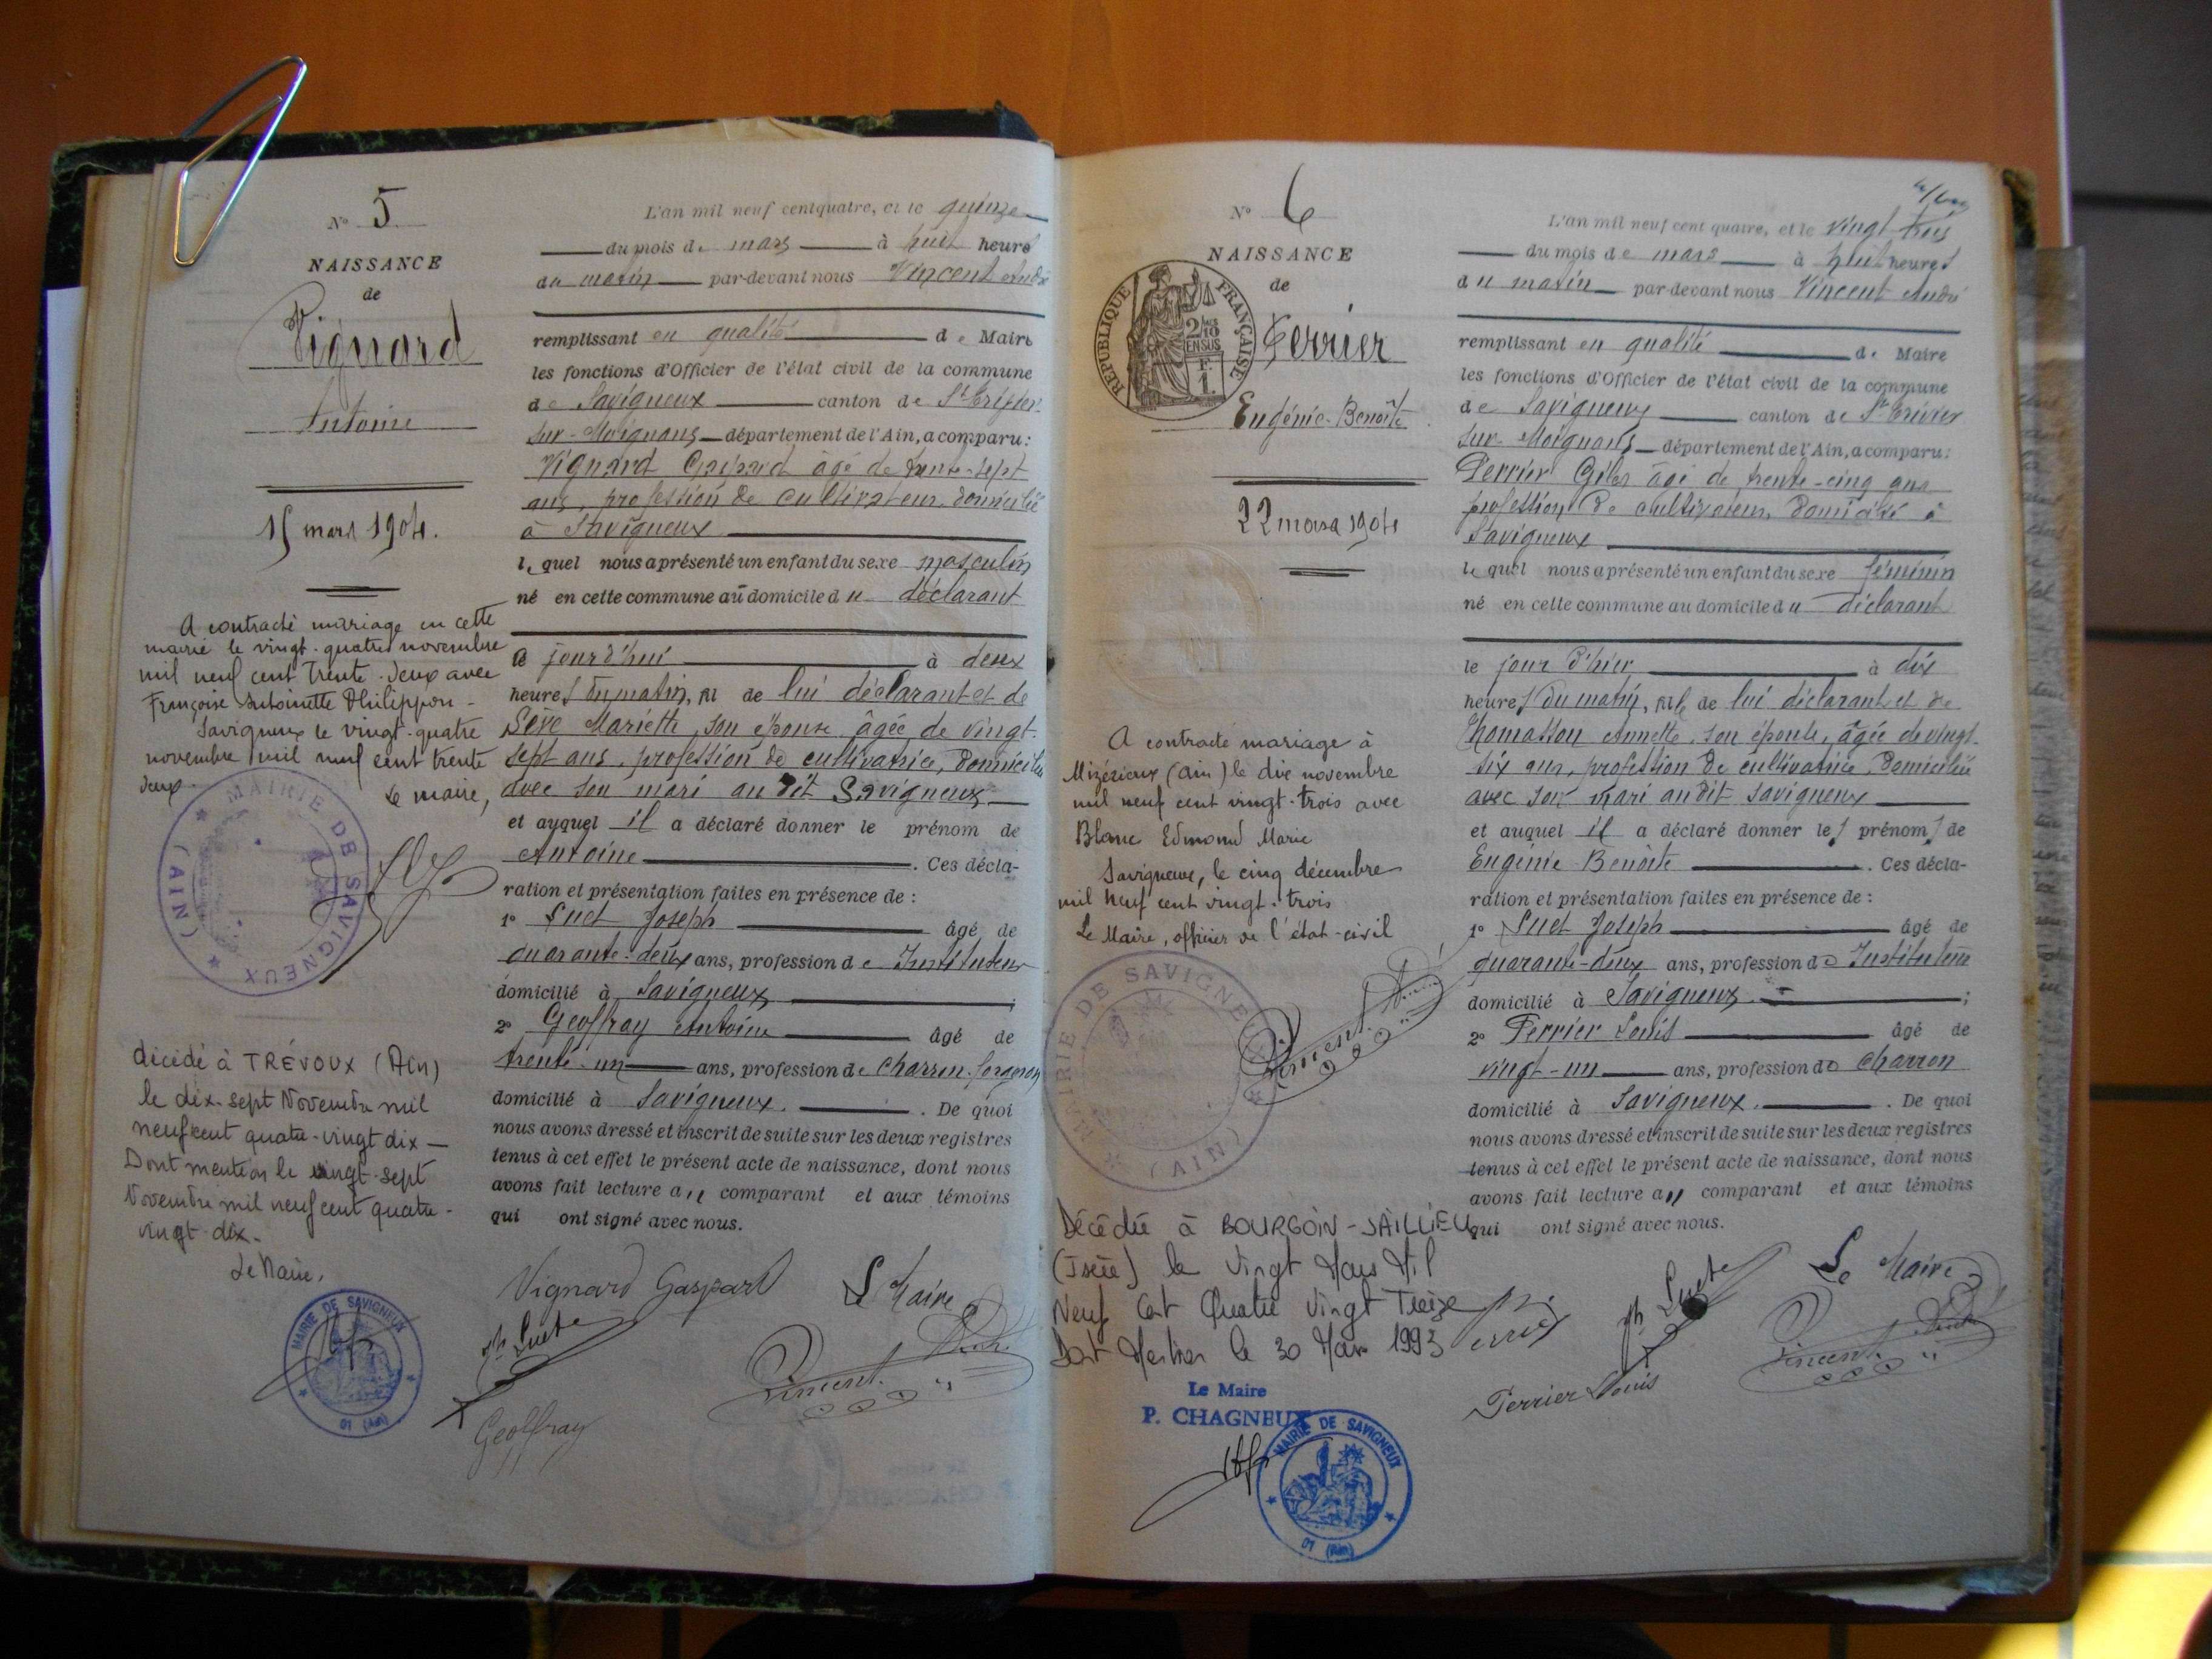 N° 5
NAISSANCE
de
Vignard
Antoine
15 mars 1904.
A contracté mariage en cette
mairie le vingt-quatre novembre
mil neuf cent trente-deux avec
Françoise Antoinette Philippon -
Savigneux le vingt-quatre
novembre mil neuf cent trente
deux.
Le maire,
MAIRIE DE SAVIGNEUX (AIN)
décédé à TRÉVOUX (Ain)
le dix-sept Novembre mil
neuf cent quatre-vingt dix —
Dont mention le vingt-sept
Novembre mil neuf cent quatre-
vingt-dix.
Le Maire,
MAIRIE DE SAVIGNEUX
01 (Ain)
L'an mil neuf cent quatre, et le quinze
du mois de mars à huit heures
du matin par-devant nous Vincent André
remplissant en qualité de Maire
les fonctions d'Officier de l'état civil de la commune
de Savigneux canton de St Trivier
sur-Moignans département de l'Ain, a comparu :
Vignard Gaspard âgé de trente-sept
ans, profession de cultivateur, domicilié
à Savigneux
lequel nous a présenté un enfant du sexe masculin
né en cette commune au domicile du déclarant
ce jourd'hui à deux
heures du matin, fils de lui déclarant et de
Sève Mariette, son épouse âgée de vingt-
sept ans, profession de cultivatrice, domiciliée
avec son mari au dit Savigneux
et auquel il a déclaré donner le prénom de
Antoine. Ces décla-
ration et présentation faites en présence de :
1° Suet Joseph âgé de
quarante-deux ans, profession de Instituteur
domicilié à Savigneux ;
2° Geoffray Antoine âgé de
trente-un ans, profession de charron-forgeron
domicilié à Savigneux. De quoi
nous avons dressé et inscrit de suite sur les deux registres
tenus à cet effet le présent acte de naissance, dont nous
avons fait lecture au comparant et aux témoins
qui ont signé avec nous.
Vignard Gaspard Le Maire
Jh Suet
Vincent André
Geoffray
N° 6
NAISSANCE
de
REPUBLIQUE FRANÇAISE
2/10 EN SUS
F. 1.
Perrier
Eugénie-Benoîte
22 mars 1904
A contracté mariage à
Mizérieux (Ain) le dix novembre
mil neuf cent vingt-trois avec
Blanc Edmond Marie
Savigneux, le cinq décembre
mil neuf cent vingt-trois
Le Maire, officier de l'état-civil
Vincent André
MAIRIE DE SAVIGNEUX (AIN)
Décédée à BOURGOIN-JAILLIEU
(Isère) le Vingt Mars Mil
Neuf Cent Quatre Vingt Treize
Dont Mention le 30 Mars 1993
Le Maire
P. CHAGNEUX
MAIRIE DE SAVIGNEUX
01 (Ain)
L'an mil neuf cent quatre, et le vingt-trois
du mois de mars à huit heures
du matin par-devant nous Vincent André
remplissant en qualité de Maire
les fonctions d'Officier de l'état civil de la commune
de Savigneux canton de St Trivier
sur-Moignans département de l'Ain, a comparu :
Perrier âgé de trente-cinq ans
profession de cultivateur, domicilié à
Savigneux
lequel nous a présenté un enfant du sexe féminin
né en cette commune au domicile du déclarant
le jour d'hier à dix
heures du matin, fille de lui déclarant et de
Thomasson Annette, son épouse, âgée de vingt-
six ans, profession de cultivatrice, domiciliée
avec son mari au dit Savigneux
et auquel il a déclaré donner les prénoms de
Eugénie-Benoîte. Ces décla-
ration et présentation faites en présence de :
1° Suet Joseph âgé de
quarante-deux ans, profession de Instituteur
domicilié à Savigneux ;
2° Perrier Louis âgé de
vingt-un ans, profession de charron
domicilié à Savigneux. De quoi
nous avons dressé et inscrit de suite sur les deux registres
tenus à cet effet le présent acte de naissance, dont nous
avons fait lecture au comparant et aux témoins
qui ont signé avec nous.
Le Maire
Perrier Jh Suet
Vincent André
Perrier Louis